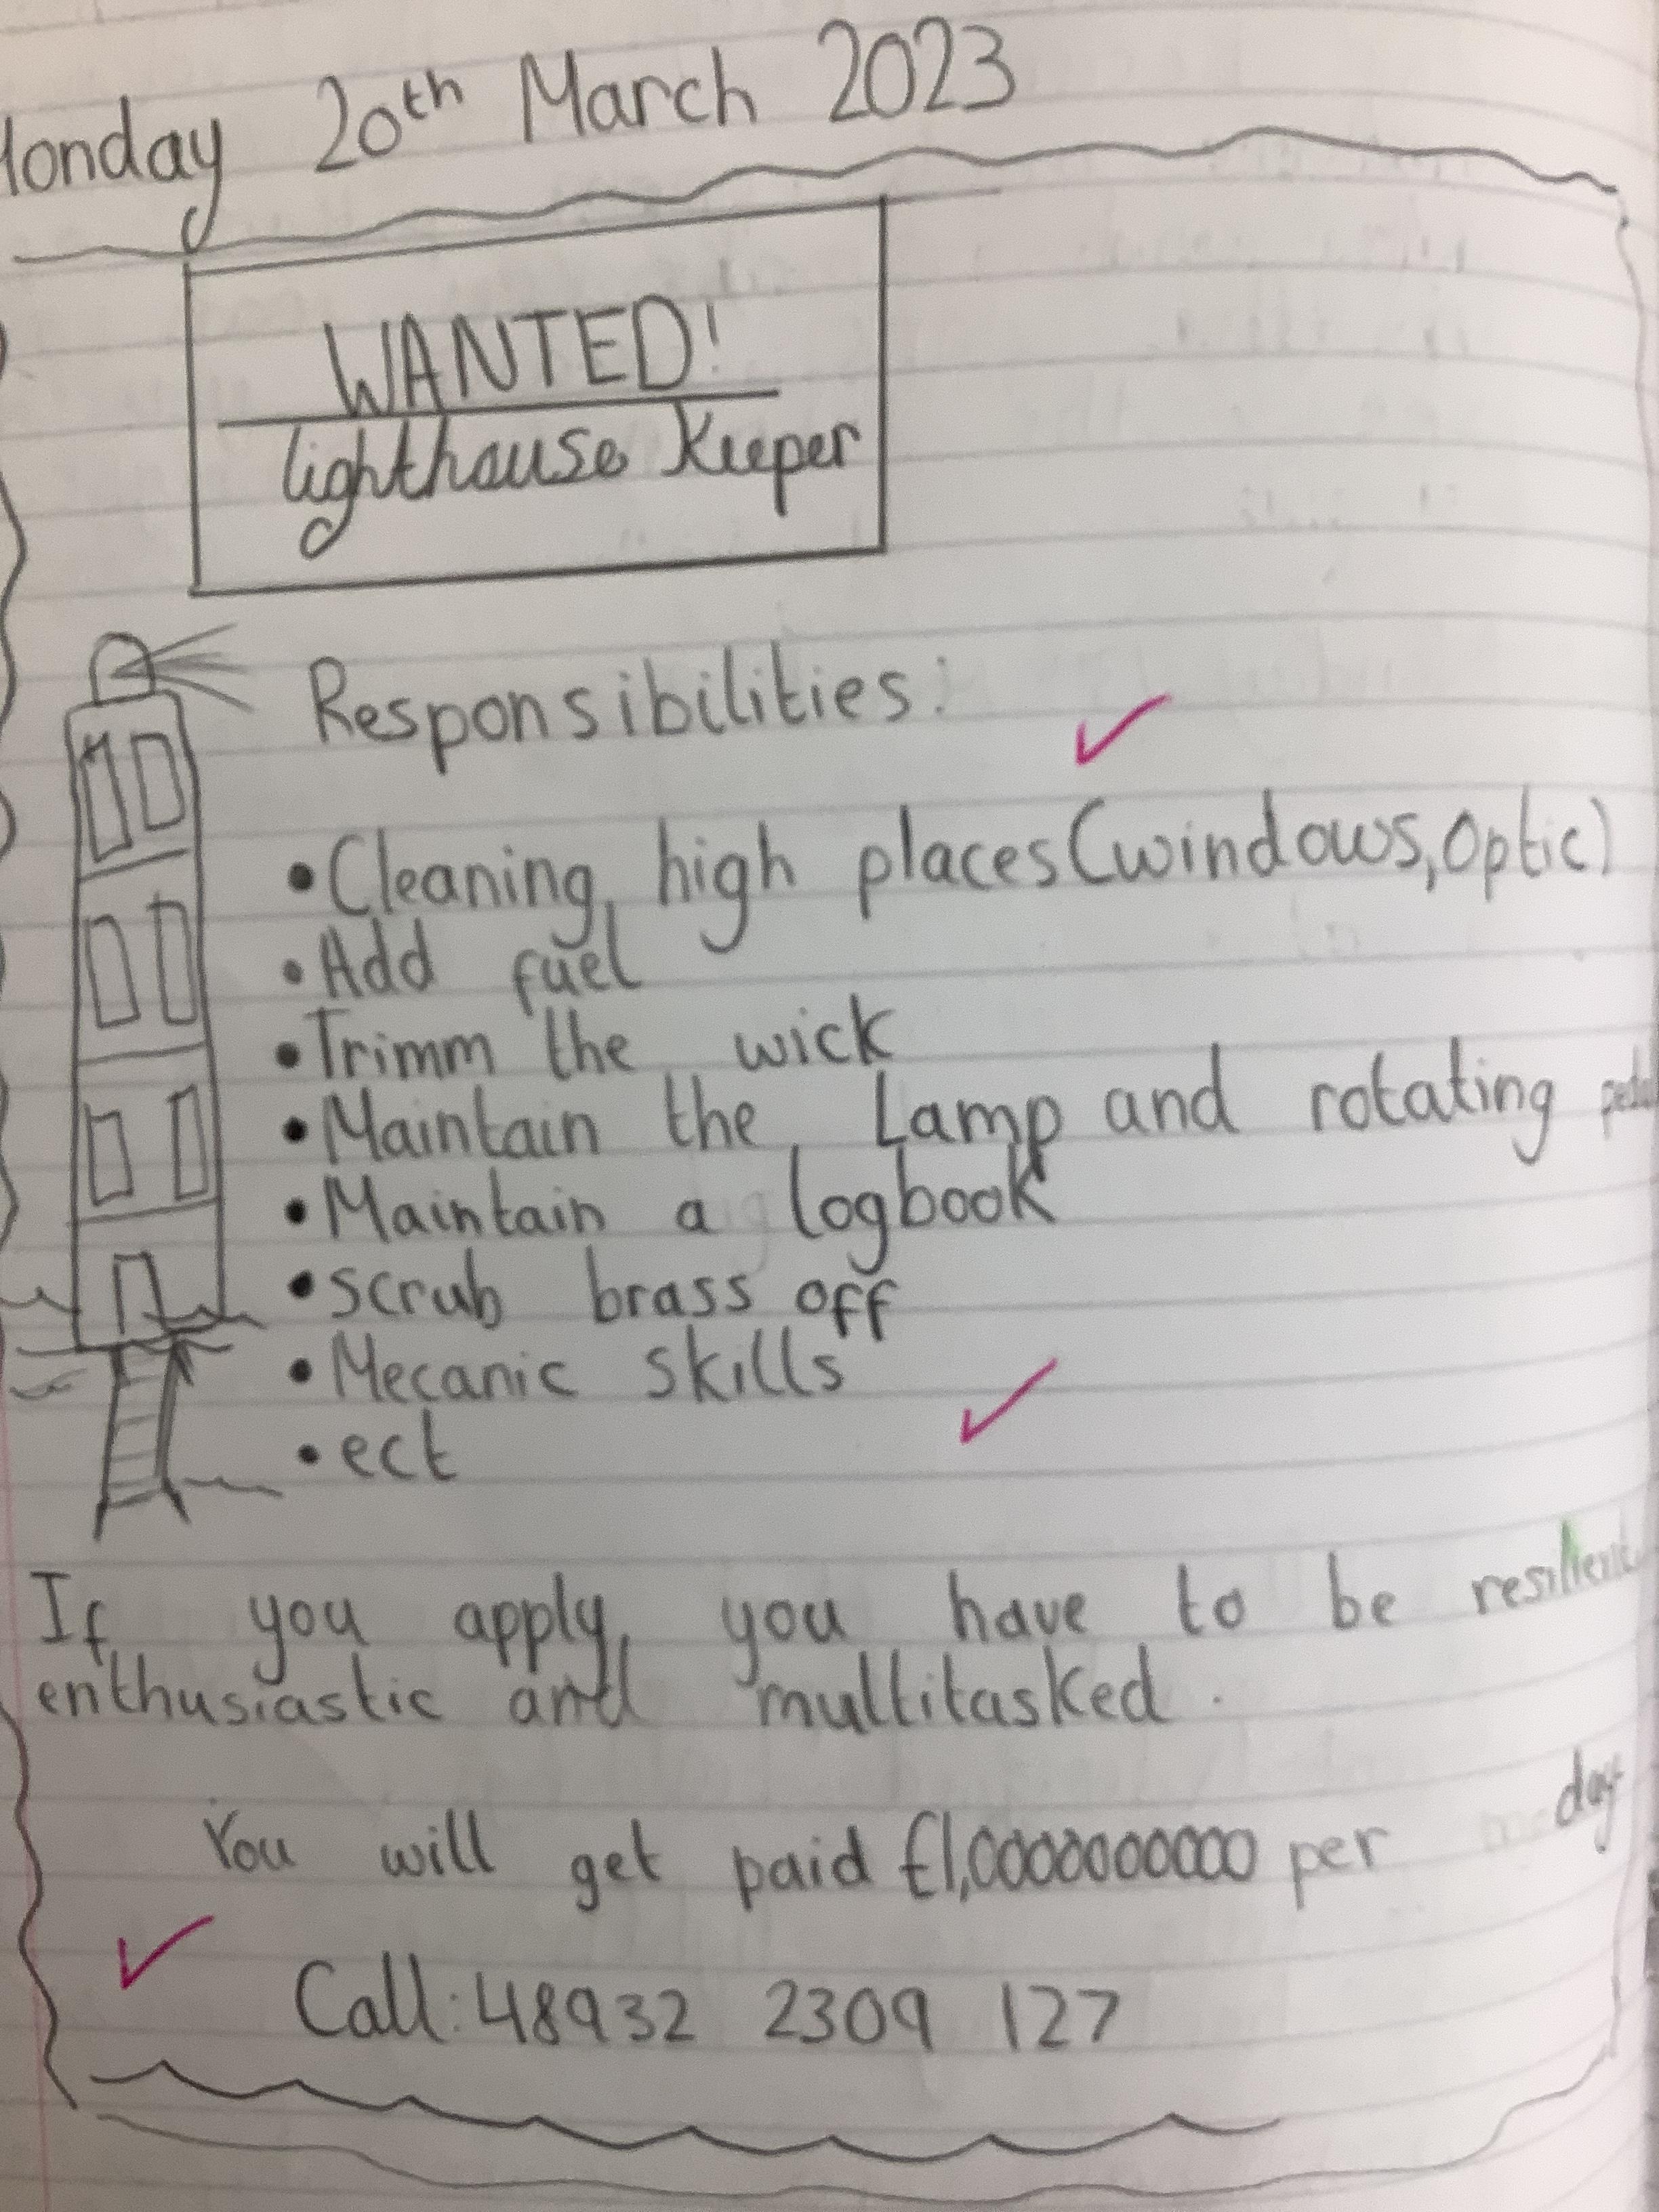 Monday 20th March 2023
WANTED!
lighthouse Keeper
Responsibilities:
•Cleaning high places(windows,Optic)
•Add fuel
•Trimm the wick
•Maintain the Lamp and rotating
•Maintain a logbook
•scrub brass off
•Mecanic skills
•ect
If you apply, you have to be resilient
enthusiastic and multitasked.
You will get paid £1,0000000000 per day
Call:48932 2309 127